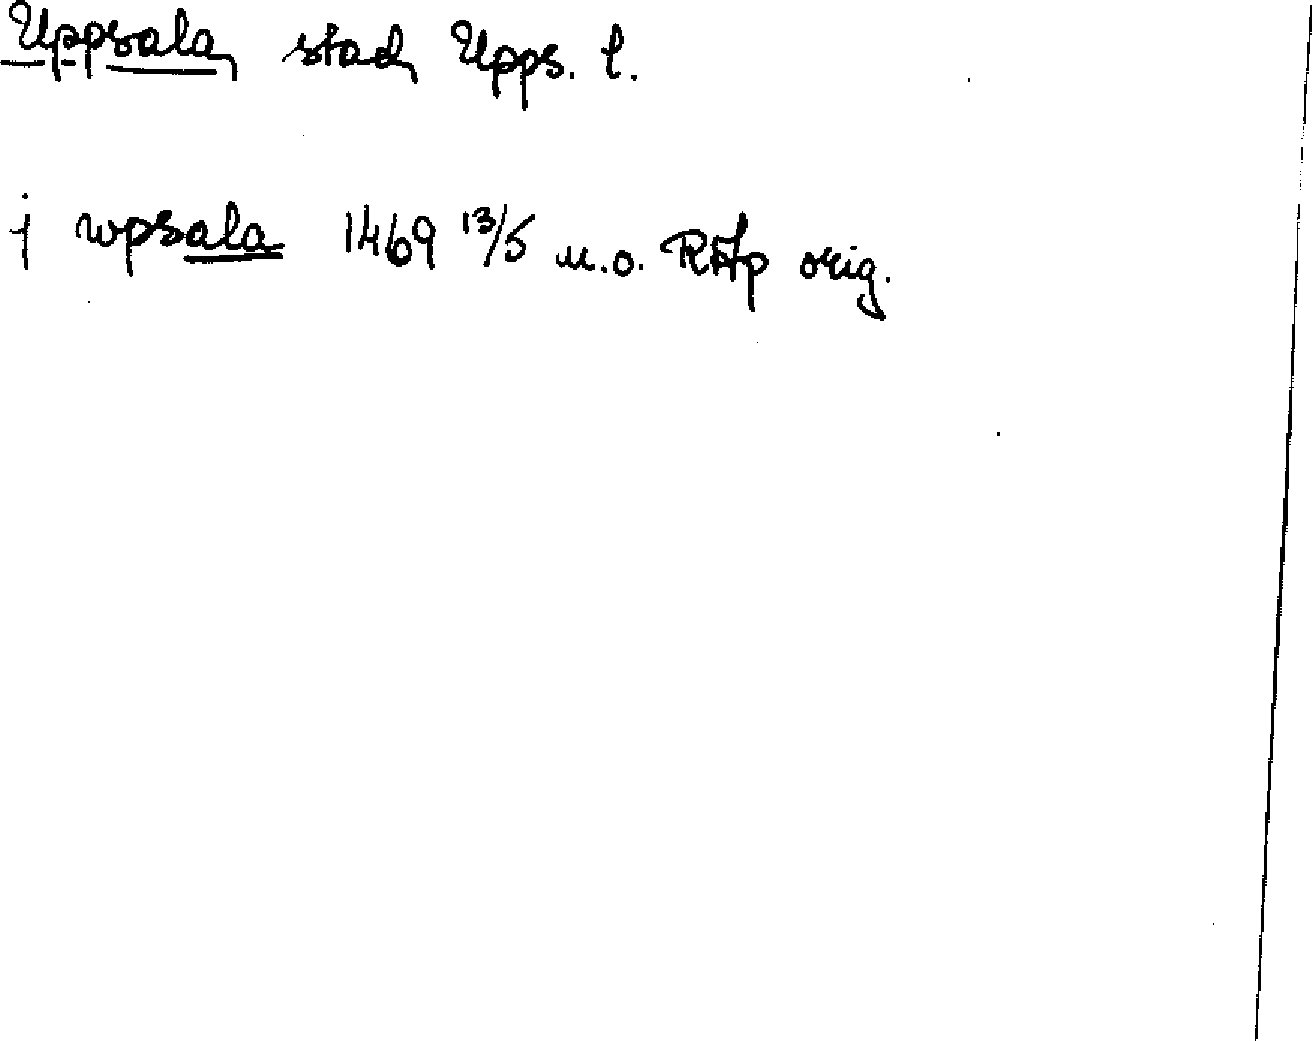 Uppsala stad Upps. l.
j wpsala 1469 13/5 u.o. RAp orig.